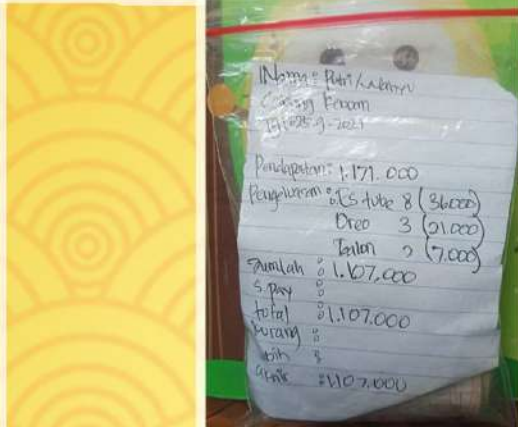 Nama : Putri/wahyu
Cabang
Tgl : 25-9-2021
Pendapatan : 1.171.000
Pengeluaran : Es tube 8 (36000)
Oreo 3 (21.000)
2 (7.000)
Jumlah : 1.107.000
S.pay :
total : 1.107.000
kurang :
lebih :
:1107.000